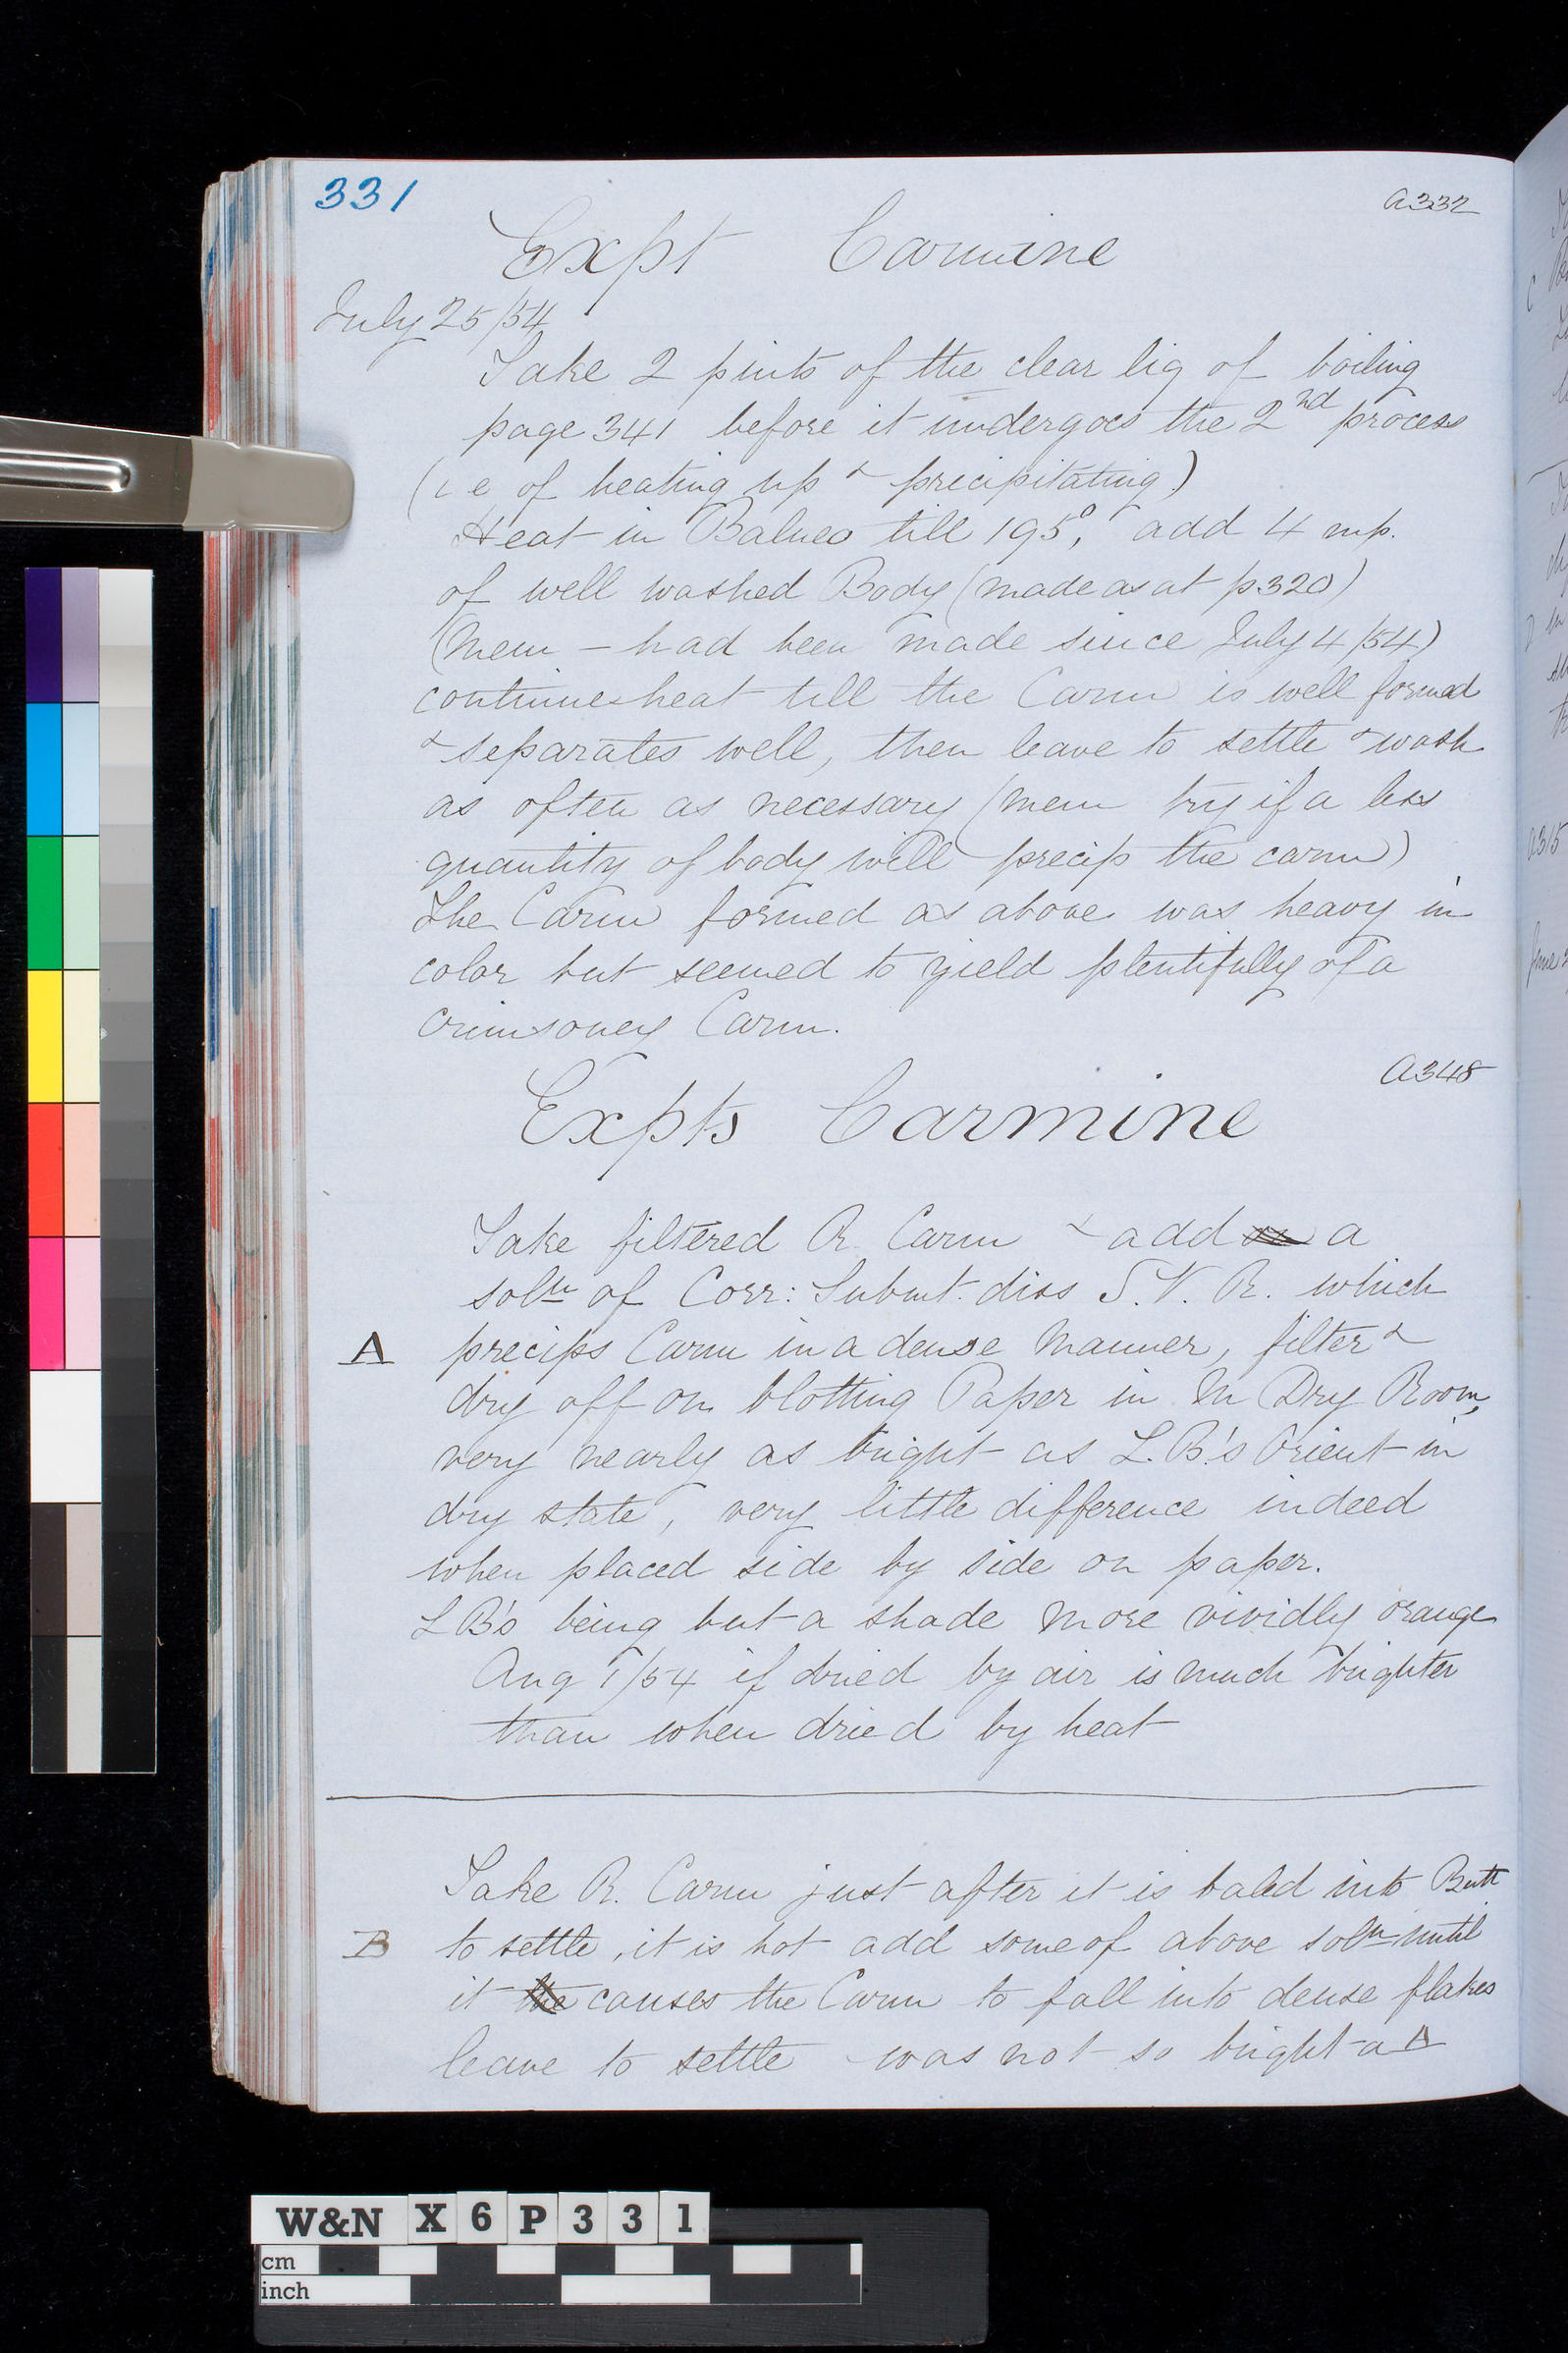 331
A332
Expt Carmine
July 25/54
Take 2 pints of the clear liq of boiling
page 341 before it undergoes the 2nd process
(i e of heating up & precipitating)
Heat in Balneo till 195°, add 4 mp.
of well washed Body (made as at p320)
(Mem – had been made since July 4/54)
continue heat till the Carm is well formed
& separates well, then leave to settle & wash
as often as necessary (mem try if a less
quantity of body will precip the carm)
The Carm formed as above was heavy in
color but seemed to yield plentifully of a
crimsoney Carm.
A348
Expts Carmine
Take filtered R. Carm & add a
soln of Corr: Submt. diss S.V.R. which
A precips Carm in a dense manner, filter &
dry off on blotting Paper in m Dry Room,
very nearly as bright as L.B's Orient in
dry state, very little difference indeed
when placed side by side on paper.
L B's being but a shade more vividly orange
Aug 1/54 if dried by air is much brighter
than when dried by heat
Take R. Carm just after it is baled into Butt
B to settle, it is hot add some of above soln until
it causes the Carm to fall into dense flakes
leave to settle – was not so bright as A
A315
June 2
W&N X 6 P 3 3 1
cm
inch